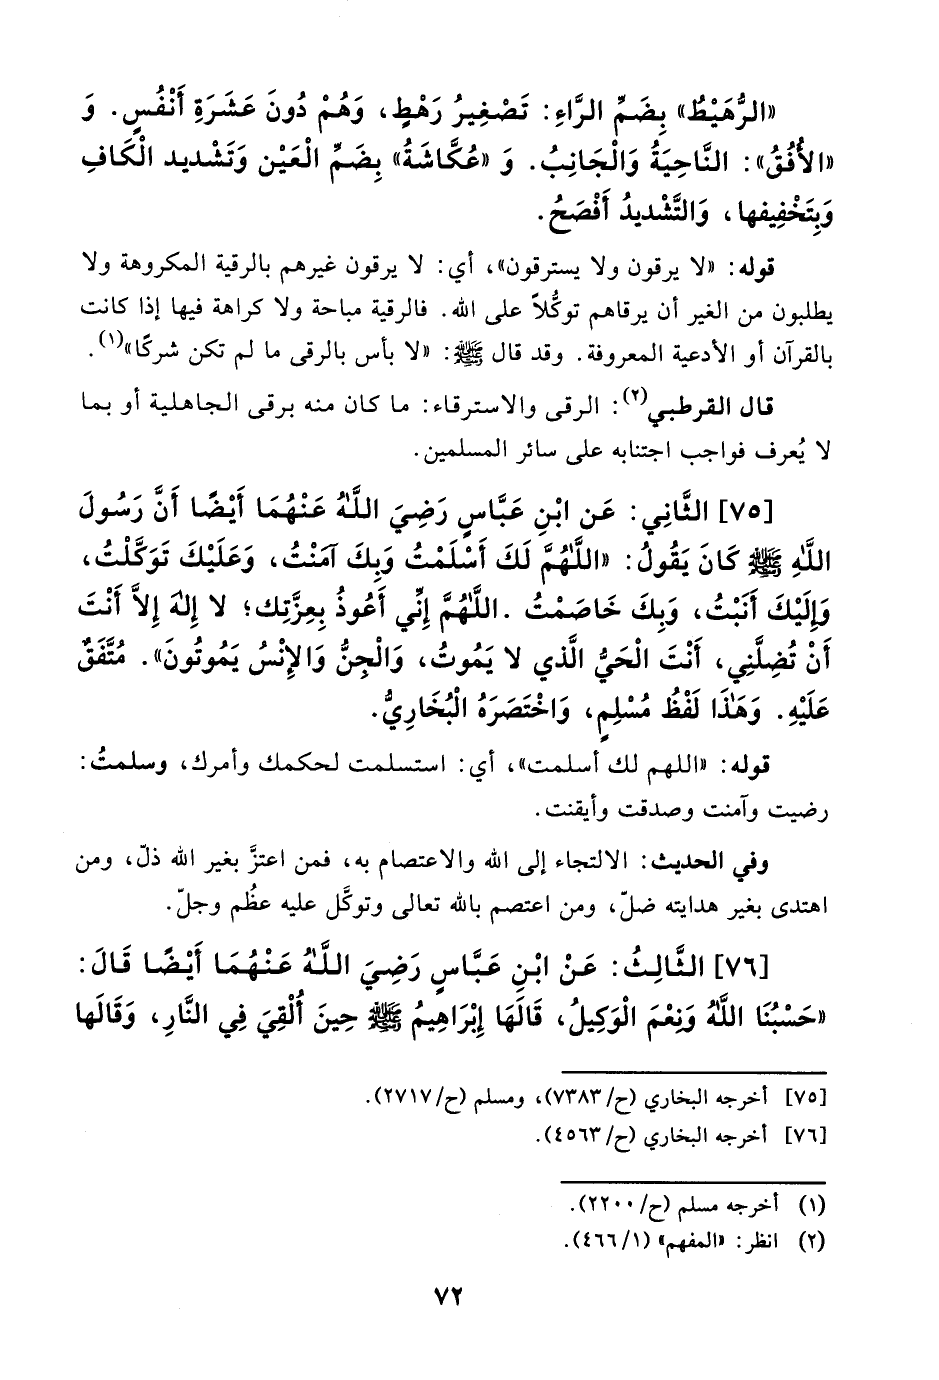 «الرُّهَيْطُ» بِضَمِّ الرَّاءِ: تَصْغِيرُ رَهْطٍ، وَهُمْ دُونَ عَشَرَةِ أَنْفُسٍ. وَ
«الأُفُقُ»: النَّاحِيَةُ وَالْجَانِبُ. وَ «عُكَّاشَةُ» بِضَمِّ الْعَيْن وَتَشْديد الْكَافِ
وَبِتَخْفِيفها، وَالتَّشْديدُ أَفْصَحُ.
قوله: «لا يرقون ولا يسترقون»، أي: لا يرقون غيرهم بالرقية المكروهة ولا
يطلبون من الغير أن يرقاهم توكُّلاً على الله. فالرقية مباحة ولا كراهة فيها إذا كانت
بالقرآن أو الأدعية المعروفة. وقد قال ﷺ: «لا بأس بالرقى ما لم تكن شركًا»(١).
قال القرطبي(٢): الرقى والاسترقاء: ما كان منه برقى الجاهلية أو بما
لا يُعرف فواجب اجتنابه على سائر المسلمين.
[٧٥] الثَّانِي: عَن ابْنِ عَبَّاسٍ رَضِيَ اللَّهُ عَنْهُمَا أَيْضًا أَنَّ رَسُولَ
اللَّهِ ﷺ كَانَ يَقُولُ: «اللَّهُمَّ لَكَ أَسْلَمْتُ وَبِكَ آمَنْتُ، وَعَلَيْكَ تَوَكَّلْتُ،
وَإِلَيْكَ أَنَبْتُ، وَبِكَ خَاصَمْتُ .اللَّهُمَّ إِنِّي أَعُوذُ بِعِزَّتِك؛ لا إِلهَ إِلاَّ أَنْتَ
أَنْ تُضِلَّنِي، أَنْتَ الْحَيُّ الَّذي لا يَمُوتُ، وَالْجِنُّ وَالإِنْسُ يَمُوتُونَ». مُتَّفَقٌ
عَلَيْهِ. وَهَذَا لَفْظُ مُسْلِمٍ، وَاخْتَصَرَهُ الْبُخَارِيُّ.
قوله: «اللهم لك أسلمت»، أي: استسلمت لحكمك وأمرك، وسلمتُ:
رضيت وآمنت وصدقت وأيقنت.
وفي الحديث: الالتجاء إلى الله والاعتصام به، فمن اعتزَّ بغير الله ذلّ، ومن
اهتدى بغير هدايته ضلّ، ومن اعتصم بالله تعالى وتوكَّل عليه عظُم وجلّ.
[٧٦] الثَّالِثُ: عَنْ ابْنِ عَبَّاسٍ رَضِيَ اللَّهُ عَنْهُمَا أَيْضًا قَالَ:
«حَسْبُنَا اللَّهُ وَنِعْمَ الْوَكِيلُ، قَالَهَا إِبْرَاهِيمُ ﷺ حِينَ أُلْقِيَ فِي النَّارِ، وَقَالَها
[٧٥] أخرجه البخاري (ح/٧٣٨٣)، ومسلم (ح/٢٧١٧).
[٧٦] أخرجه البخاري (ح/٤٥٦٣).
(١) أخرجه مسلم (ح/٢٢٠٠).
(٢) انظر: «المفهم» (١/٤٦٦).
٧٢